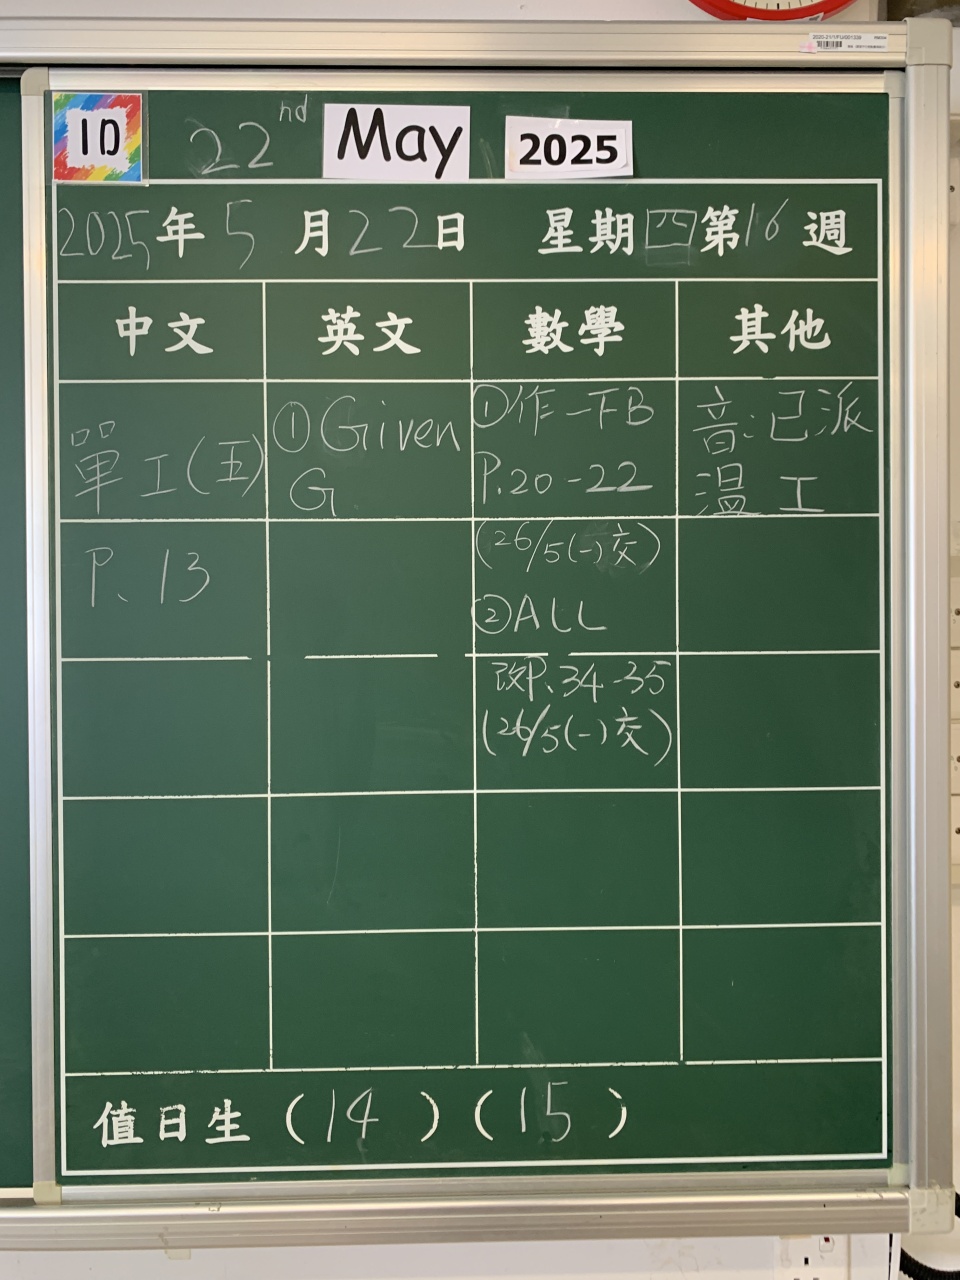 1D 22nd May 2025
2025年5月22日 星期四第16週
中文 英文 數學 其他
單工(五)
P. 13
①Given
G
①作一下B
P.20-22
(26/5(一)交)
②ALL
改P. 34-35
(26/5(一)交)
音:已派
溫工
值日生 (14) (15)